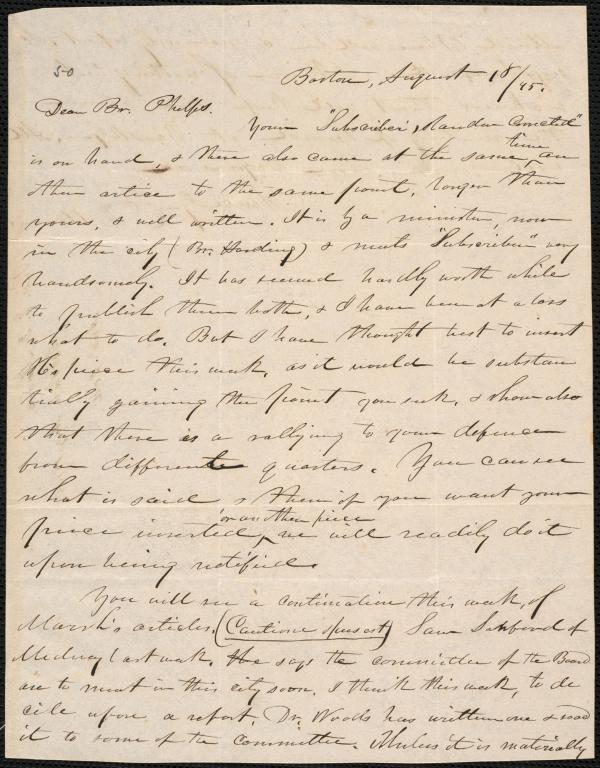 50
Boston, August 18/45.
Dear Br. Phelps.
Your "Subscriber's slander Corrected"
is on hand, & there also came at the same time an
other artice to the same point, longer than
yours, & well written. It is by a minister, now
in the city (Br. Harding) & meets "Subscriber" very
handsomely. It has seemed hardly worth while
to publish them both, & I have been at a loss
what to do. But I have thought best to insert
H's piece this week, as it would be substan
tially gaining the point you seek, & show also
that there is a rallying to your defence
from different quarters. You can see
what is said & then if you want your
piece inserted, or another piece we will readily do it
upon being notified.
You will see a continuation this week, of
Marsh's articles. (Cautione opus est) Saw Sanford of
Medway last week. He says the committee of the Board
are to meet in this city soon, I think this week, to de
cide upon a report. Dr. Woods has written one & read
it to some of the committee. Unless it is materially